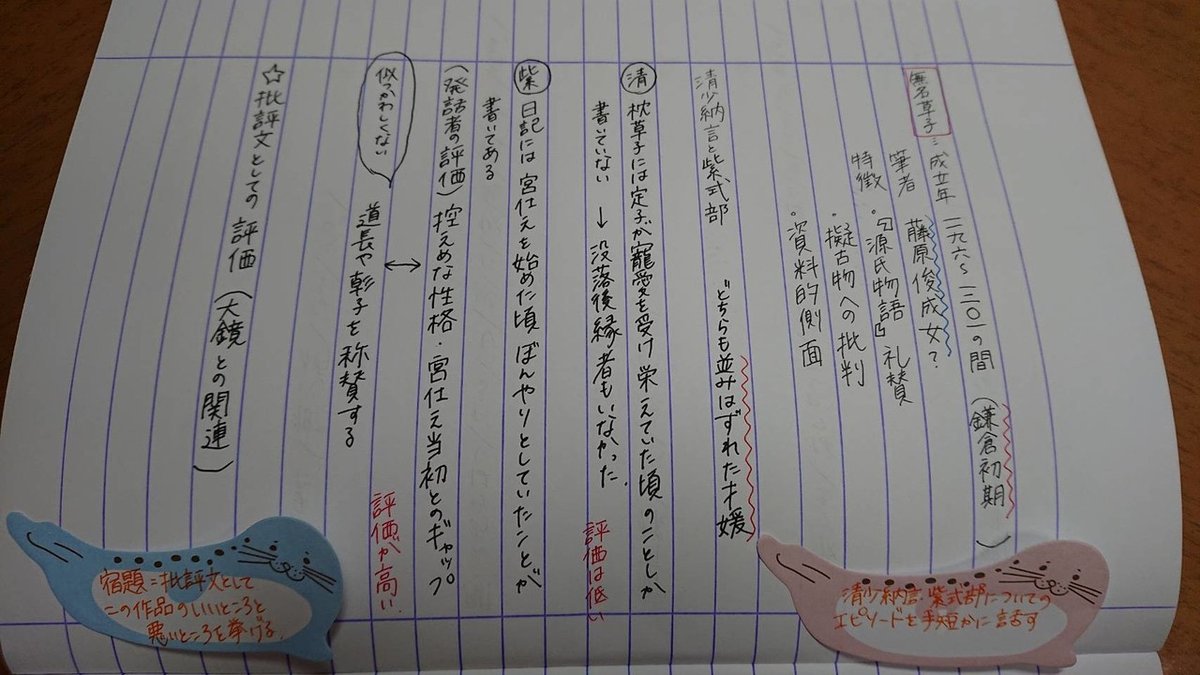 無名草子：成立年 一一九六～一二〇一の間 (鎌倉初期)
筆者 藤原俊成女？
特徴 ・『源氏物語』礼賛
・擬古物への批判
・資料的側面
清少納言と紫式部 どちらも並みはずれた才媛
清 枕草子には定子が寵愛を受け栄えていた頃のことしか
書いていない → 没落後縁者もいなかった. 評価は低い
紫 日記には宮仕えを始めた頃ぼんやりとしていたことが
書いてある
(発話者の評価) 控えめな性格・宮仕え当初とのギャップ
↔
似つかわしくない
道長や彰子を称賛する 評価が高い.
☆批評文としての評価 (大鏡との関連)
清少納言・紫式部についての
エピソードを手短かに話す
宿題＝批評文として
この作品のいいところと
悪いところを挙げる.